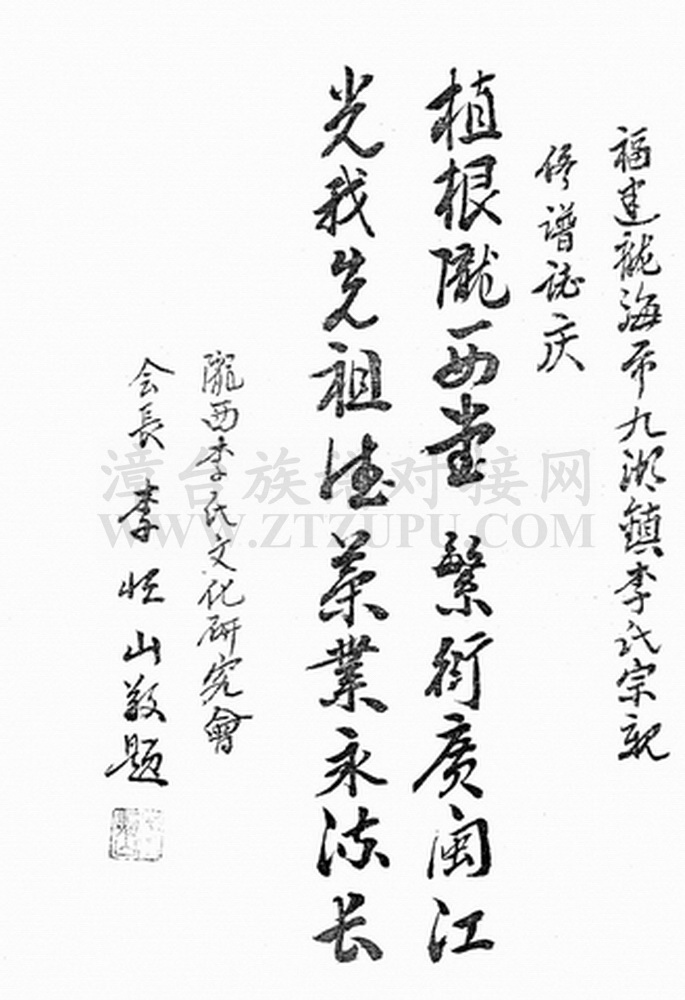 福建龍海市九湖鎮李氏宗親
修譜誌庆
植根隴西堂 繁衍廣閩江
光我先祖德 榮業永流长
隴西李氏文化研究會
会長 李恒山敬題
漳台族谱对接网
WWW.ZTZUPU.COM